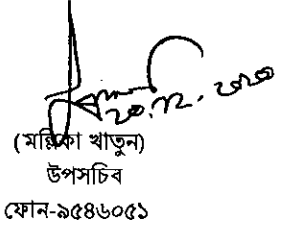 ২০.১২.২০২০
(মল্লিকা খাতুন)
উপসচিব
ফোন-৯৫৪৬০৫১